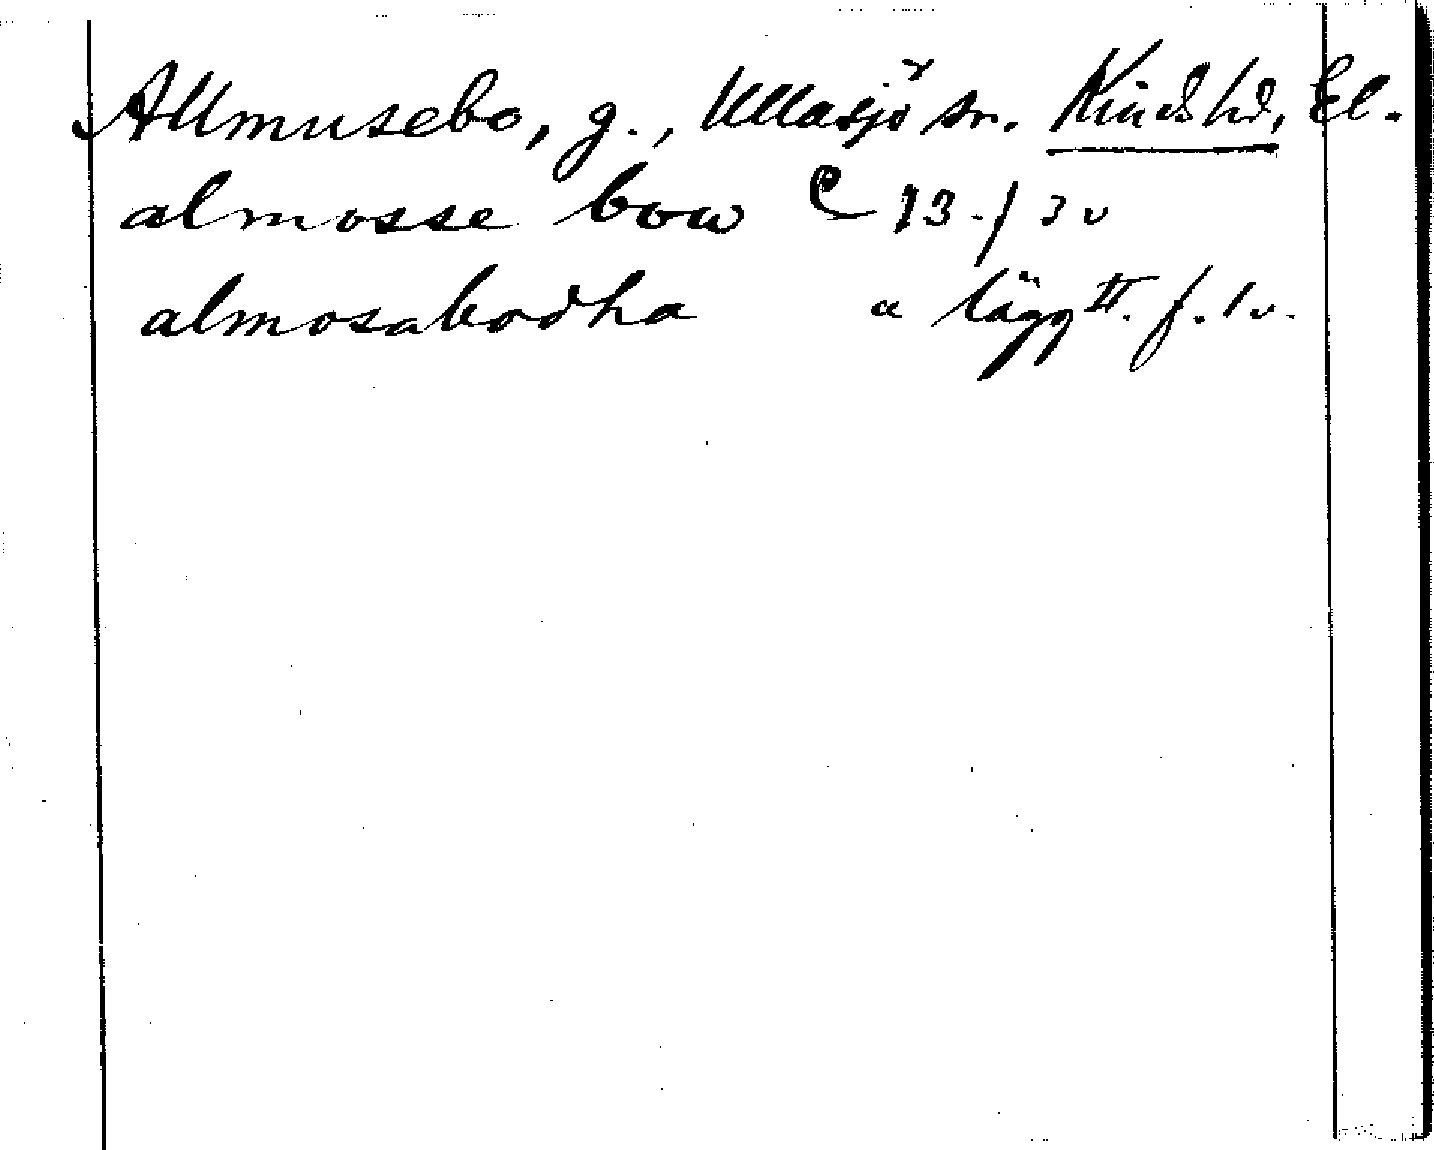 Allmusebo, g., Ullasjö sn. Kinds hd, El.
almosse bow C 13 - / 3 v
almosabodha " lägg II. f. 1 v.